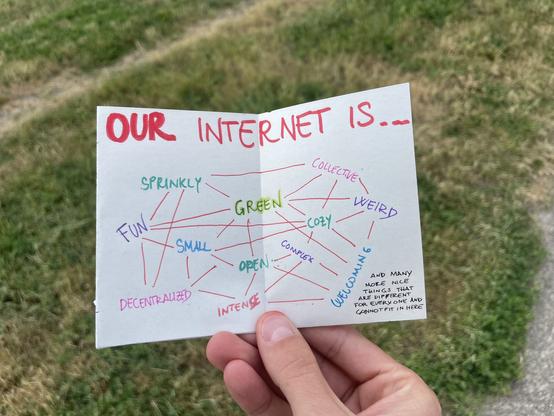 OUR INTERNET IS...
SPRINKLY
COLLECTIVE
GREEN
WEIRD
FUN
COZY
SMALL
COMPLEX
OPEN
WELCOMING
DECENTRALIZED
INTENSE
AND MANY
MORE NICE
THINGS THAT
ARE DIFFERENT
FOR EVERYONE AND
CANNOT FIT IN HERE